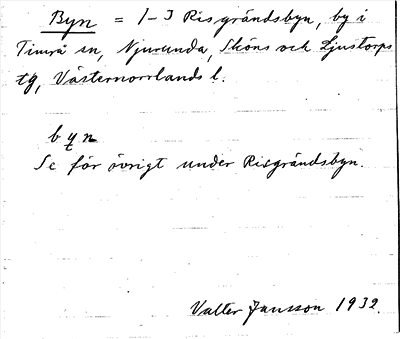 Byn = 1-3 Risgrändsbyn, by i
Timrå sn, Njurunda, Sköns och Ljustorps
tg, Västernorrlands l.
byn
Se för övrigt under Risgrändsbyn.
Valter Jansson 1932.